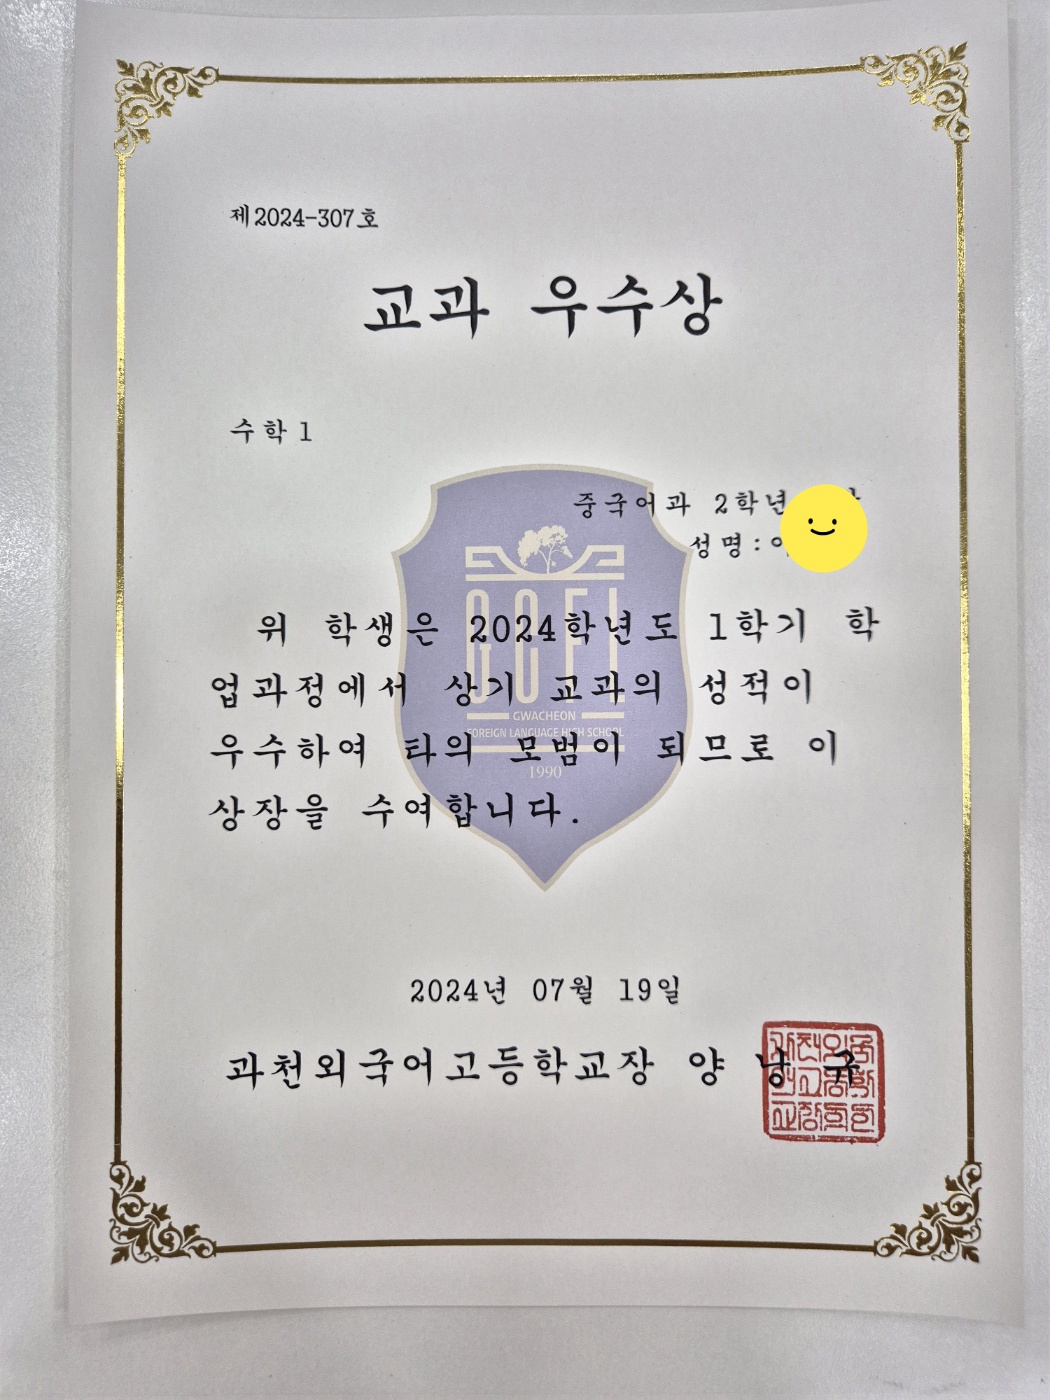 제2024-307호
교과 우수상
수학1
중국어과 2학년
성명:
위 학생은 2024학년도 1학기 학
업과정에서 상기 교과의 성적이
우수하여 타의 모범이 되므로 이
상장을 수여합니다.
GCFL
GWACHEON
FOREIGN LANGUAGE HIGH SCHOOL
1990
2024년 07월 19일
과천외국어고등학교장 양 낭 규